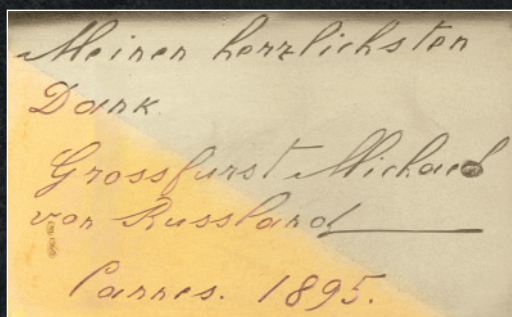 Meinen herzlichsten
Dank
Grossfurst Michael
von Russland
Cannes. 1895.